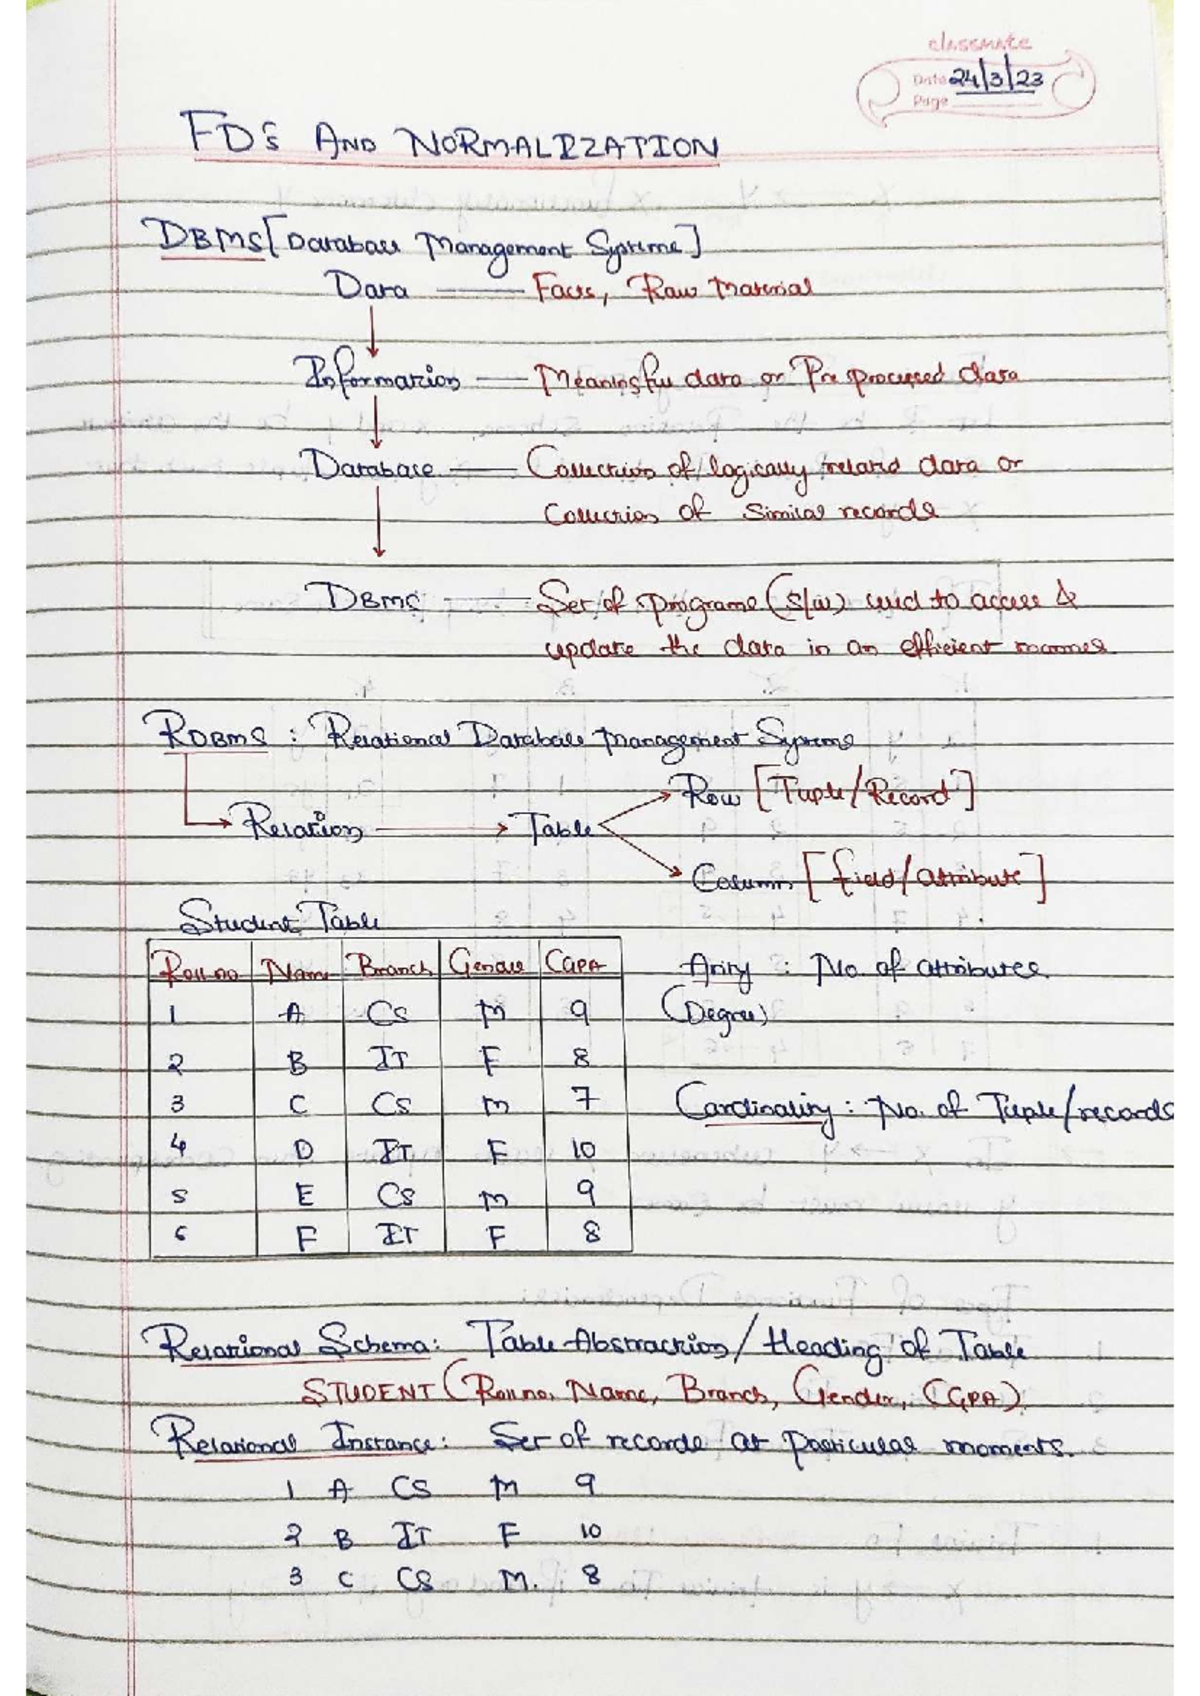 classmate
Date 24/3/23
Page
FDs AND NORMALIZATION
DBMS [Database Management Systems]
Data — Facts, Raw Material
Information — Meaningful data or Pre processed data
Database — Collection of logically related data or
Collection of Similar records
DBMS — Set of programs (S/w) used to access &
update the data in an efficient manner
RDBMS : Relational Database Management Systems
Row [Tuple/Record]
Relation → Table
Column [field/attribute]
Student Table
Roll no Name Branch Gender CGPA
1 A CS M 9
2 B IT F 8
3 C CS M 7
4 D IT F 10
5 E CS M 9
6 F IT F 8
Arity : No. of attributes.
(Degree)
Cardinality : No. of Tuple/records
Relational Schema: Table Abstraction/Heading of Table
STUDENT (Roll no, Name, Branch, Gender, CGPA)
Relational Instance: Set of records at particular moments.
1 A CS M 9
2 B IT F 10
3 C CS M. 8